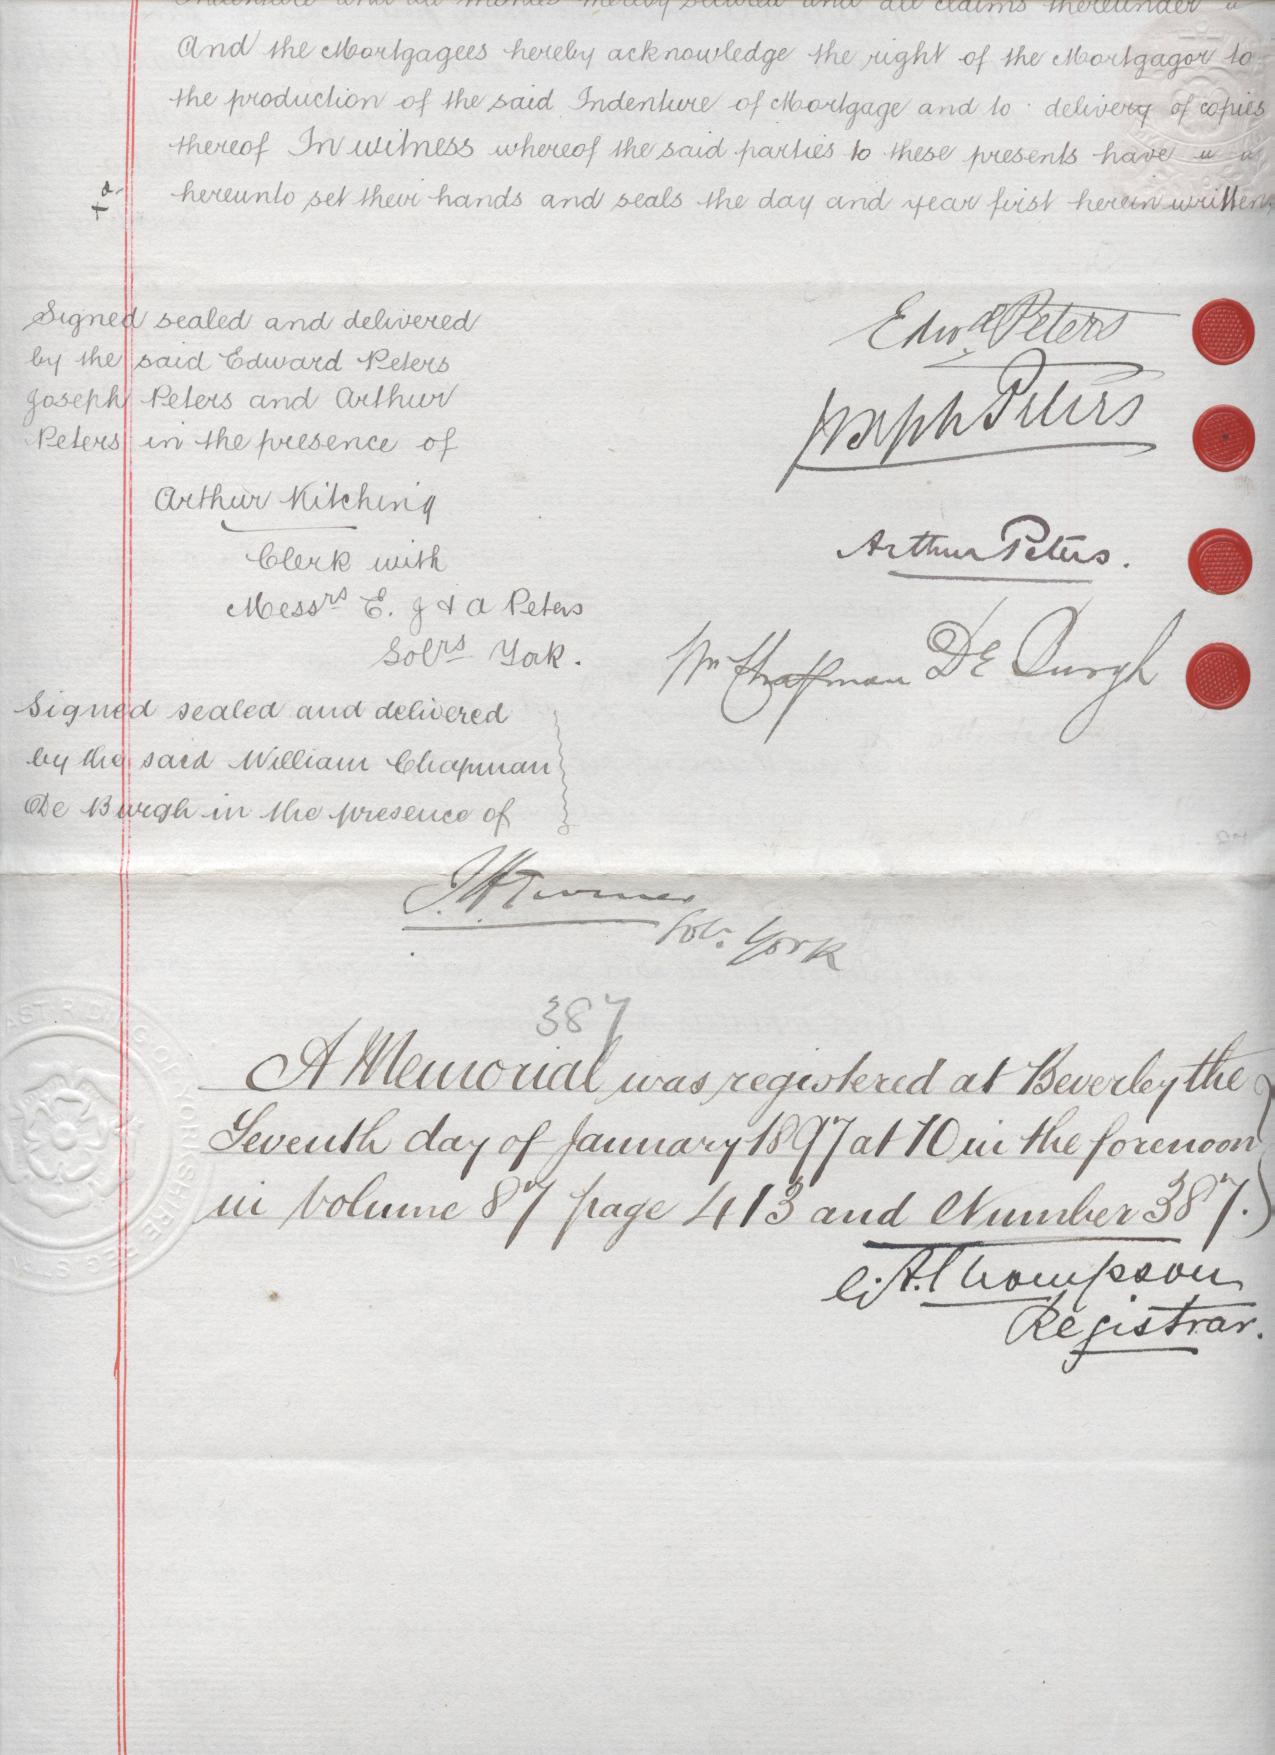 Indenture and all monies hereby secured and all claims thereunder "
And the Mortgagees hereby acknowledge the right of the Mortgagor to
the production of the said Indenture of Mortgage and to delivery of copies
thereof In witness whereof the said parties to these presents have " "
hereunto set their hands and seals the day and year first herein written.
Signed sealed and delivered
by the said Edward Peters
Joseph Peters and Arthur
Peters in the presence of
Arthur Kitching
Clerk with
Messrs E. J & A Peters
Solrs York.
Edwd Peters
Joseph Peters
Arthur Peters.
Wm Chapman De Burgh
Signed sealed and delivered
by the said William Chapman
De Burgh in the presence of
J. H. Turner
Solr. York
387
A Memorial was registered at Beverley the
Seventh day of January 1897 at 10 in the forenoon
in Volume 87 page 413 and Number 387.
Thompson
Registrar.
EAST RIDING OF YORKSHIRE REGISTRY